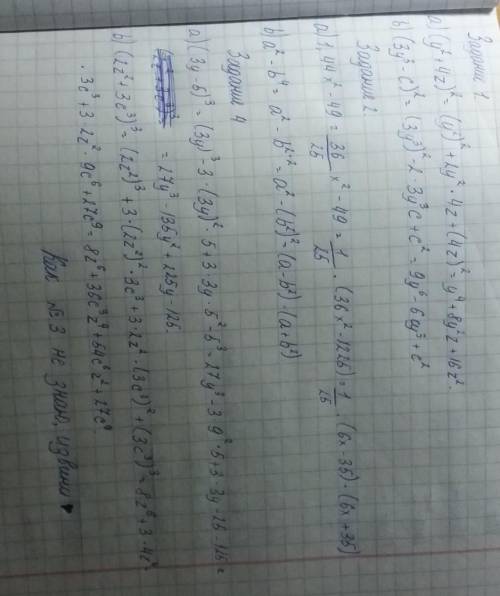 Задание 1
a) (y²+4z)² = (y²)²+2y²·4z+(4z)² = y⁴+8y²z+16z².
b) (3y³-c)² = (3y³)²-2·3y³c+c² = 9y⁶-6cy³+c²
Задание 2
a) 1,44x²-49 = 36/25 x²-49 = 1/25 · (36x²-1225) = 1/25 · (6x-35)·(6x+35)
b) a²-b⁴ = a²-b²·² = a²-(b²)² = (a-b²)·(a+b²)
Задание 4
a) (3y-5)³ = (3y)³-3·(3y)²·5+3·3y·5²-5³ = 27y³-3·9²·5+3·3y·25-125 =
= 27y³-135y²+225y-125
b) (2z²+3c³)³ = (2z²)³+3·(2z²)²·3c³+3·2z²·(3c³)²+(3c³)³ = 8z⁶+3·4z⁴·
·3c³+3·2z²·9c⁶+27c⁹ = 8z⁶+36c³z⁴+54c⁶z²+27c⁹.
Как №3 не знаю, извини ♥